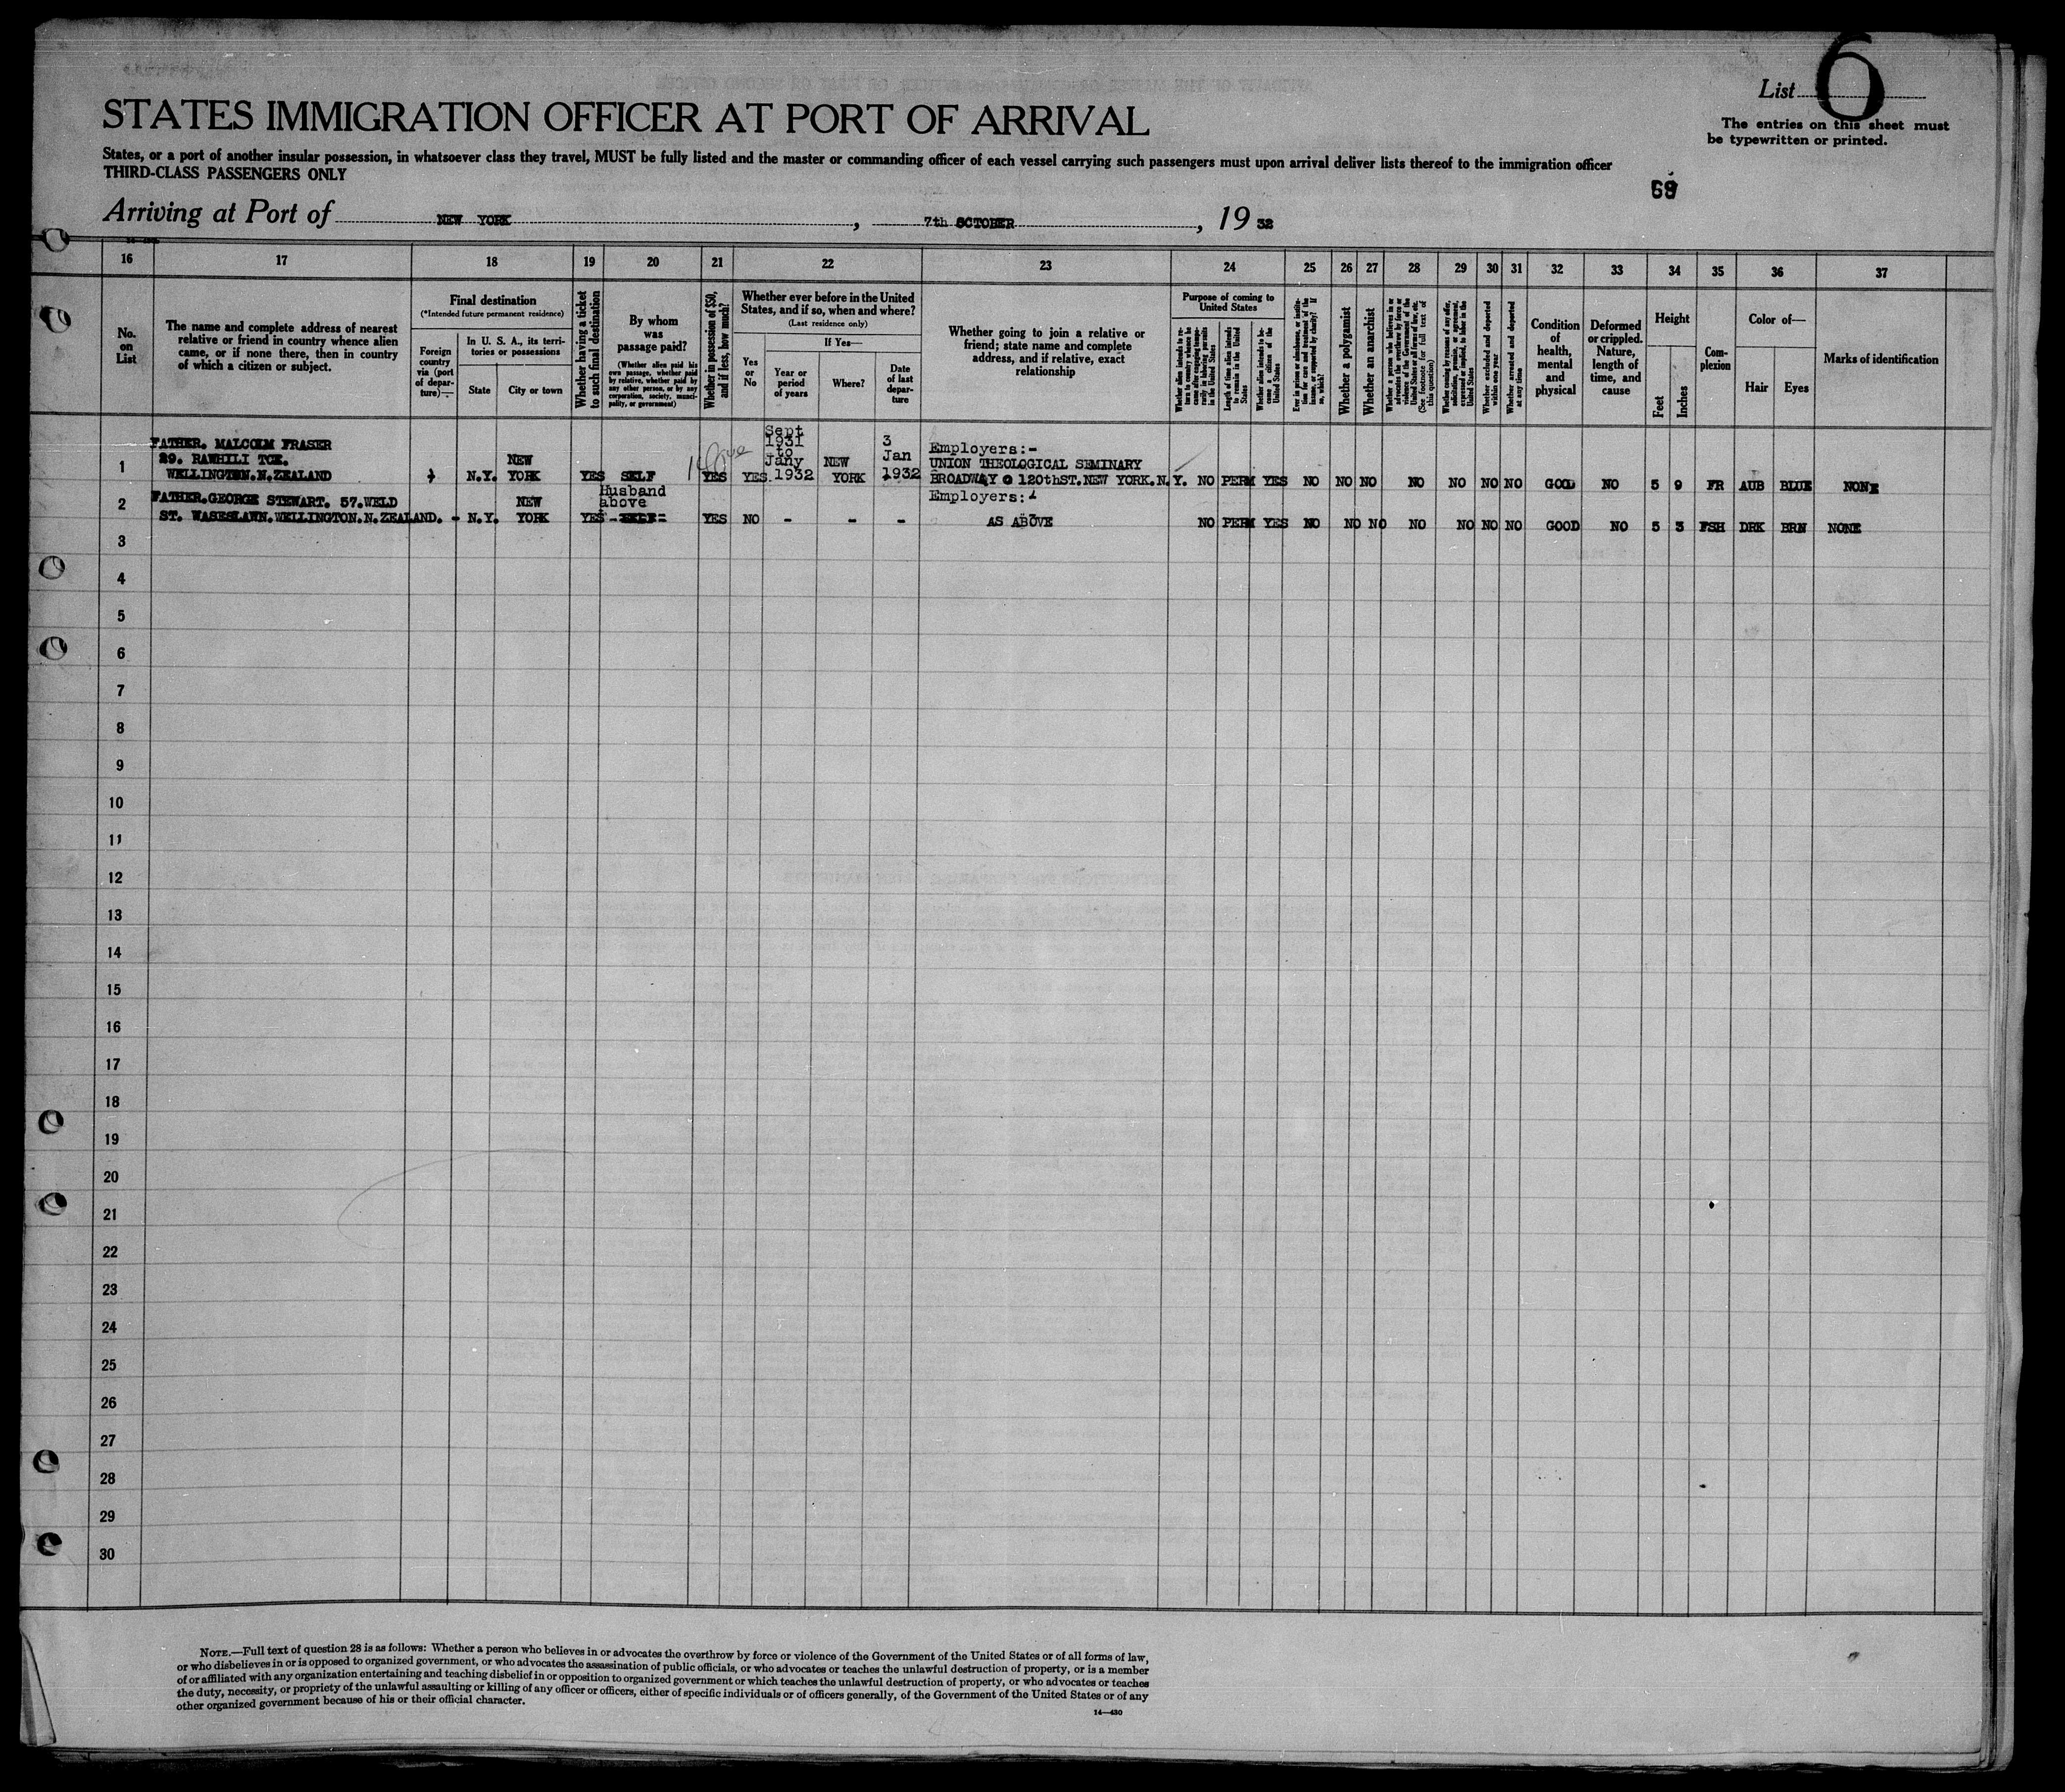 List 6
The entries on this sheet must
be typewritten or printed.
STATES IMMIGRATION OFFICER AT PORT OF ARRIVAL
States, or a port of another insular possession, in whatsoever class they travel, MUST be fully listed and the master or commanding officer of each vessel carrying such passengers must upon arrival deliver lists thereof to the immigration officer
THIRD-CLASS PASSENGERS ONLY
Arriving at Port of NEW YORK, 7th OCTOBER, 19 32
16 17 18 19 20 21 22 23 24 25 26 27 28 29 30 31 32 33 34 35 36 37
No.
on
List
The name and complete address of nearest
relative or friend in country whence alien
came, or if none there, then in country
of which a citizen or subject.
Final destination
(*Intended future permanent residence)
Foreign
country
via (port
of depar-
ture)—
In U. S. A., its terri-
tories or possessions
State
City or town
Whether having a ticket
to such final destination
By whom
was
passage paid?
(Whether alien paid his
own passage, whether paid
by relative, whether paid by
any other person, or by any
corporation, society, munici-
pality, or government)
Whether in possession of $50,
and if less, how much?
Whether ever before in the United
States, and if so, when and where?
(Last residence only)
Yes
or
No
If Yes—
Year or
period
of years
Where?
Date
of last
depar-
ture
Whether going to join a relative or
friend; state name and complete
address, and if relative, exact
relationship
Purpose of coming to
United States
Whether alien intends to re-
turn to country whence he
came after engaging tempo-
rarily in laboring pursuits
in the United States
Length of time alien intends
to remain in the United
States
Whether alien intends to be-
come a citizen of the
United States
Ever in prison or almshouse, or institu-
tion for care and treatment of the
insane, or supported by charity? If
so, which?
Whether a polygamist
Whether an anarchist
Whether a person who believes in or
advocates the overthrow by force or
violence of the Government of the
United States or all forms of law, etc.
(See footnote for full text of
this question)
Whether coming by reason of any offer,
solicitation, promise, or agreement,
expressed or implied, to labor in the
United States
Whether excluded and deported
within one year
Whether arrested and deported
at any time
Condition
of
health,
mental
and
physical
Deformed
or crippled.
Nature,
length of
time, and
cause
Height
Feet
Inches
Com-
plexion
Color of—
Hair
Eyes
Marks of identification
FATHER. MALCOLM FRASER
29. RAWHILI TCE.
1 WELLINGTON.N.ZEALAND N.Y. NEW YORK YES SELF YES YES Sept 1931 to Jany 1932 NEW YORK 3 Jan 1932
Employers:-
UNION THEOLOGICAL SEMINARY
BROADWAY @ 120thST.NEW YORK.N.Y. NO PERM YES NO NO NO NO NO NO NO GOOD NO 5 9 FR AUB BLUE NONE
2 FATHER.GEORGE STEWART. 57.WELD
ST. WASESLAWN.WELLINGTON.N.ZEALAND. - N.Y. NEW YORK YES Husband above -SELF- YES NO - - -
Employers:
AS ABOVE NO PERM YES NO NO NO NO NO NO NO GOOD NO 5 3 FSH DRK BRN NONE
3
4
5
6
7
8
9
10
11
12
13
14
15
16
17
18
19
20
21
22
23
24
25
26
27
28
29
30
NOTE.—Full text of question 28 is as follows: Whether a person who believes in or advocates the overthrow by force or violence of the Government of the United States or of all forms of law,
or who disbelieves in or is opposed to organized government, or who advocates the assassination of public officials, or who advocates or teaches the unlawful destruction of property, or is a member
of or affiliated with any organization entertaining and teaching disbelief in or opposition to organized government or which teaches the unlawful destruction of property, or who advocates or teaches
the duty, necessity, or propriety of the unlawful assaulting or killing of any officer or officers, either of specific individuals or of officers generally, of the Government of the United States or of any
other organized government because of his or their official character.
14—430